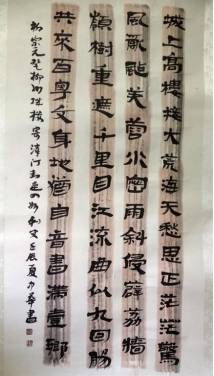 城上高樓接大荒海天愁思正茫茫驚
風亂颭芙蓉水密雨斜侵薜荔牆
嶺樹重遮千里目江流曲似九回腸
共來百粵文身地猶自音書滯壹鄉
柳宗元登柳州城樓寄漳汀封連四州刺史壬辰夏華書